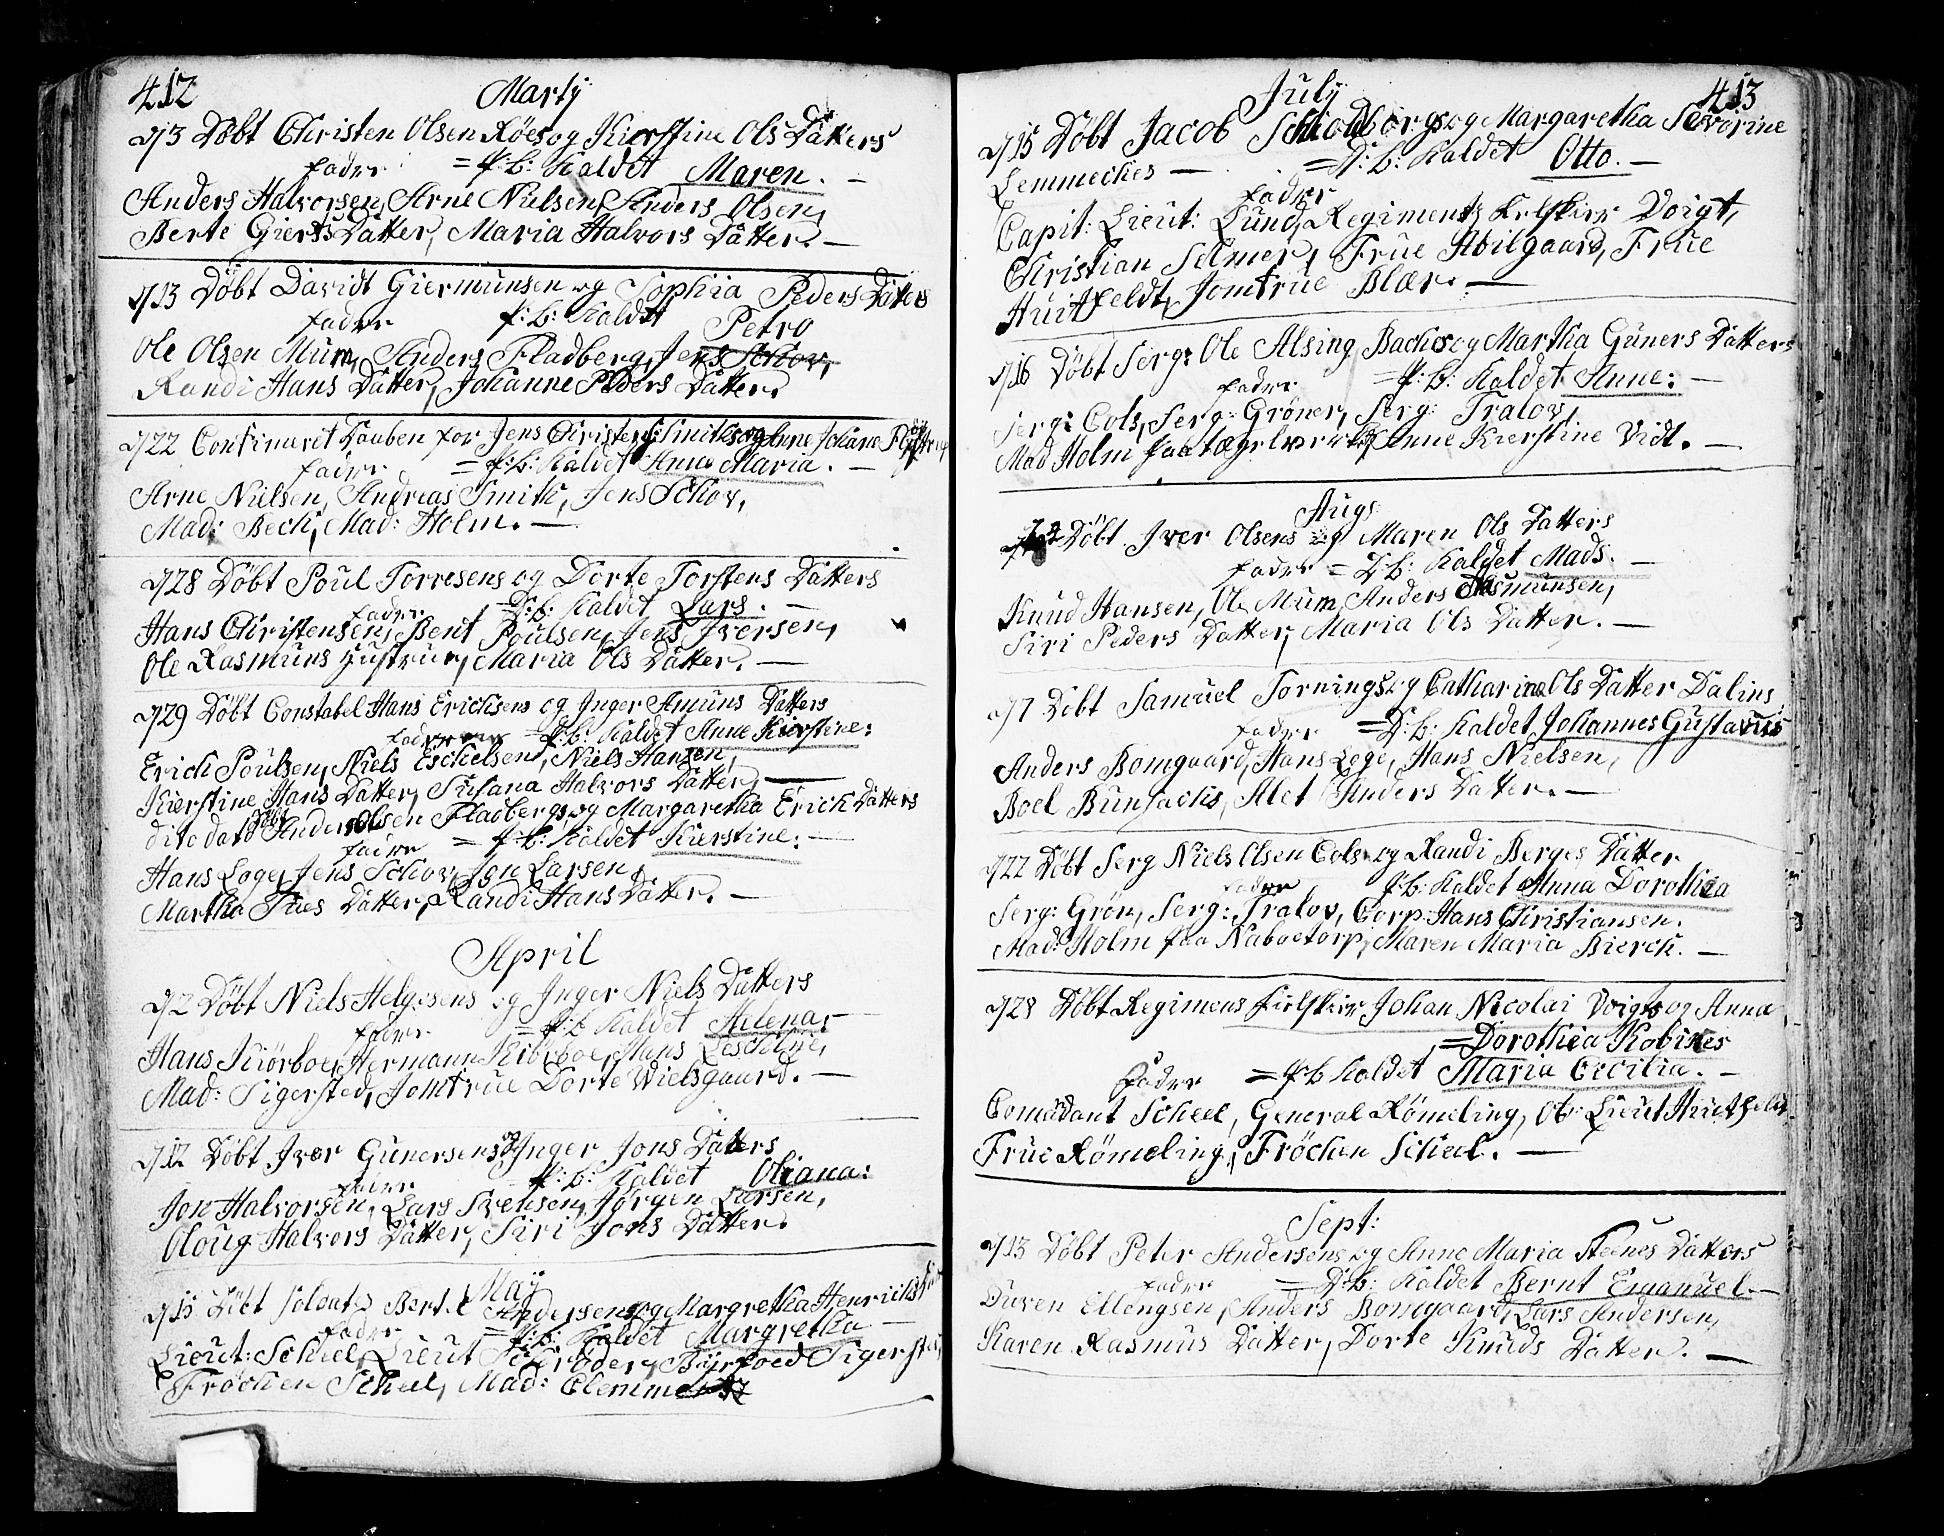 412
Martÿ
d/3 Döbt Christen Olsen Röes og Kierstine Ols Dätters
fadre = p: b: Kaldet Maren. —
Anders Halvorsen, Arne Nielsen, Anders Olsen,
Berte Gierts Dätter, Maria Halvors Dätter. —
d/13 Döbt Davidt Giermunsen og Sophia Peders Dätters
fadre p: b: Kaldet Petro
Ole Olsen Mum, Anders Fladberg, Jens Schov,
Randi Hans Dätter, Johanne Peders Dätter.
d/22 Confirmerit Daaben for Jens Christens: Smiths og Anne Johane
fadre = p: b: Kaldet Anna Maria. —
Arne Nielsen, Andreas Smith, Jens Schov,
Mad: Bech, Mad: Holm. —
d/28 Döbt Poul Torresens og Dorte Torstens Dätters
fadre D: b: Kaldet Lars. —
Hans Christensen, Bent Poulsen, Jens Iversen,
Ole Rasmuns, Maria Ols Dätter. —
d/29 Döbt Constabel Hans Erichsens og Inger Amuns Dätters
fadre = p: b: Kaldet Anne Kierstine:
Erich Poulsen, Niels Eschelsen, Niels Hansen,
Kierstine Hans Dätter, Susana Halvors Dätter, —
dito dato Döbt Anders Olsen Fladbergs og Margaretha Erich Dätters
fadre = p: b: Kaldet Kierstine. —
Hans Loge, Jens Schov, Jon Larsen,
Martha Tues Dätter, Randi Hans Dätter. —
April
d/2 Döbt Niels Helgesens og Inger Niels Dätters
fadre = p: b Kaldet Helena. —
Hans Kiörboe, Hermann Kiörboe, Hans Leschlÿe,
Mad: Sigersted, Jomfrue Dorte Wielsgaard. —
d/12 Döbt Iver Gunersens og Inger Jons Däters
fadre p: b: Kaldet Oliana:
Jon Halvorsen, Lars Svensen, Jörgen Larsen,
Oloug Halvors Dätter, Siri Jons Dätter.
Maÿ
d/15 Döbt Soldat Bertel Andersens og Margretha Henrichs
fadre = p: b: Kaldet Margretha —
Lieut: Scheel, Lieut Schröder, Bÿefoed Sigersted,
Fröchen Scheel, Mad:
413
Julÿ
d/15 Döbt Jacob Schioldborgs og Margaretha Severine
Lemmeches — = D: b: Kaldet Otto. —
fadre
Capit: Lieut: Lund, Regiments Feltskier Voigt,
Christian Selmer, Frue Abilgaard, Frue
Huitfeldt, Jomfrue Blær. —
d/16 Döbt Serg: Ole Alsing Bachs og Martha Guners Dätters
fadre = p: b: Kaldet Anne: —
Serg: Cols, Serg: Gröner, Serg: Tralov,
Mad Holm paa tægelverket, Anne Kierstine Vidt. —
Augs:
Döbt Iver Olsens og Maren Ols Dätters
fadre = D: b: Kaldet Mads. —
Knud Hansen, Ole Mum, Anders Rasmunsen,
Siri Peders Datter, Maria Ols Datter. —
d/7 Döbt Samuel Tornings og Catharina Ols Datter Dalins
fadre = D: b: Kaldet Johannes Gustavus
Anders Bomgaard, Hans Loge, Hans Nielsen,
Boel Bunsachs, Alet Anders Datter. —
d/22 Döbt Serg Niels Olsen Cols og Randi Berges Dätter
fadre p: b: Kaldet Anna Dorothea
Serg: Grön, Serg: Tralov, Corp: Hans Christiansen.
Mad: Holm paa Naboetorp, Maren Maria Bierch. —
d/28 Döbt Regimens Feltskier Johan Nicolai Voigts og Anna
= Dorothea Kobikes
fadre = p: b Kaldet Maria Cecilia. —
Comedant Scheel, General Römeling, Ob: Lieut Huitfeld,
Frue Römeling, Fröchen Scheel. —
Sept:
d/13 Döbt Peter Andersens og Anne Maria Steenes Dätters
fadre = D: b: Kaldet Bernt Emanuel. —
Duven Ellengsen, Anders Bomgaard, Lars Andersen,
Karen Rasmus Datter, Dorte Knuds Dätter. —